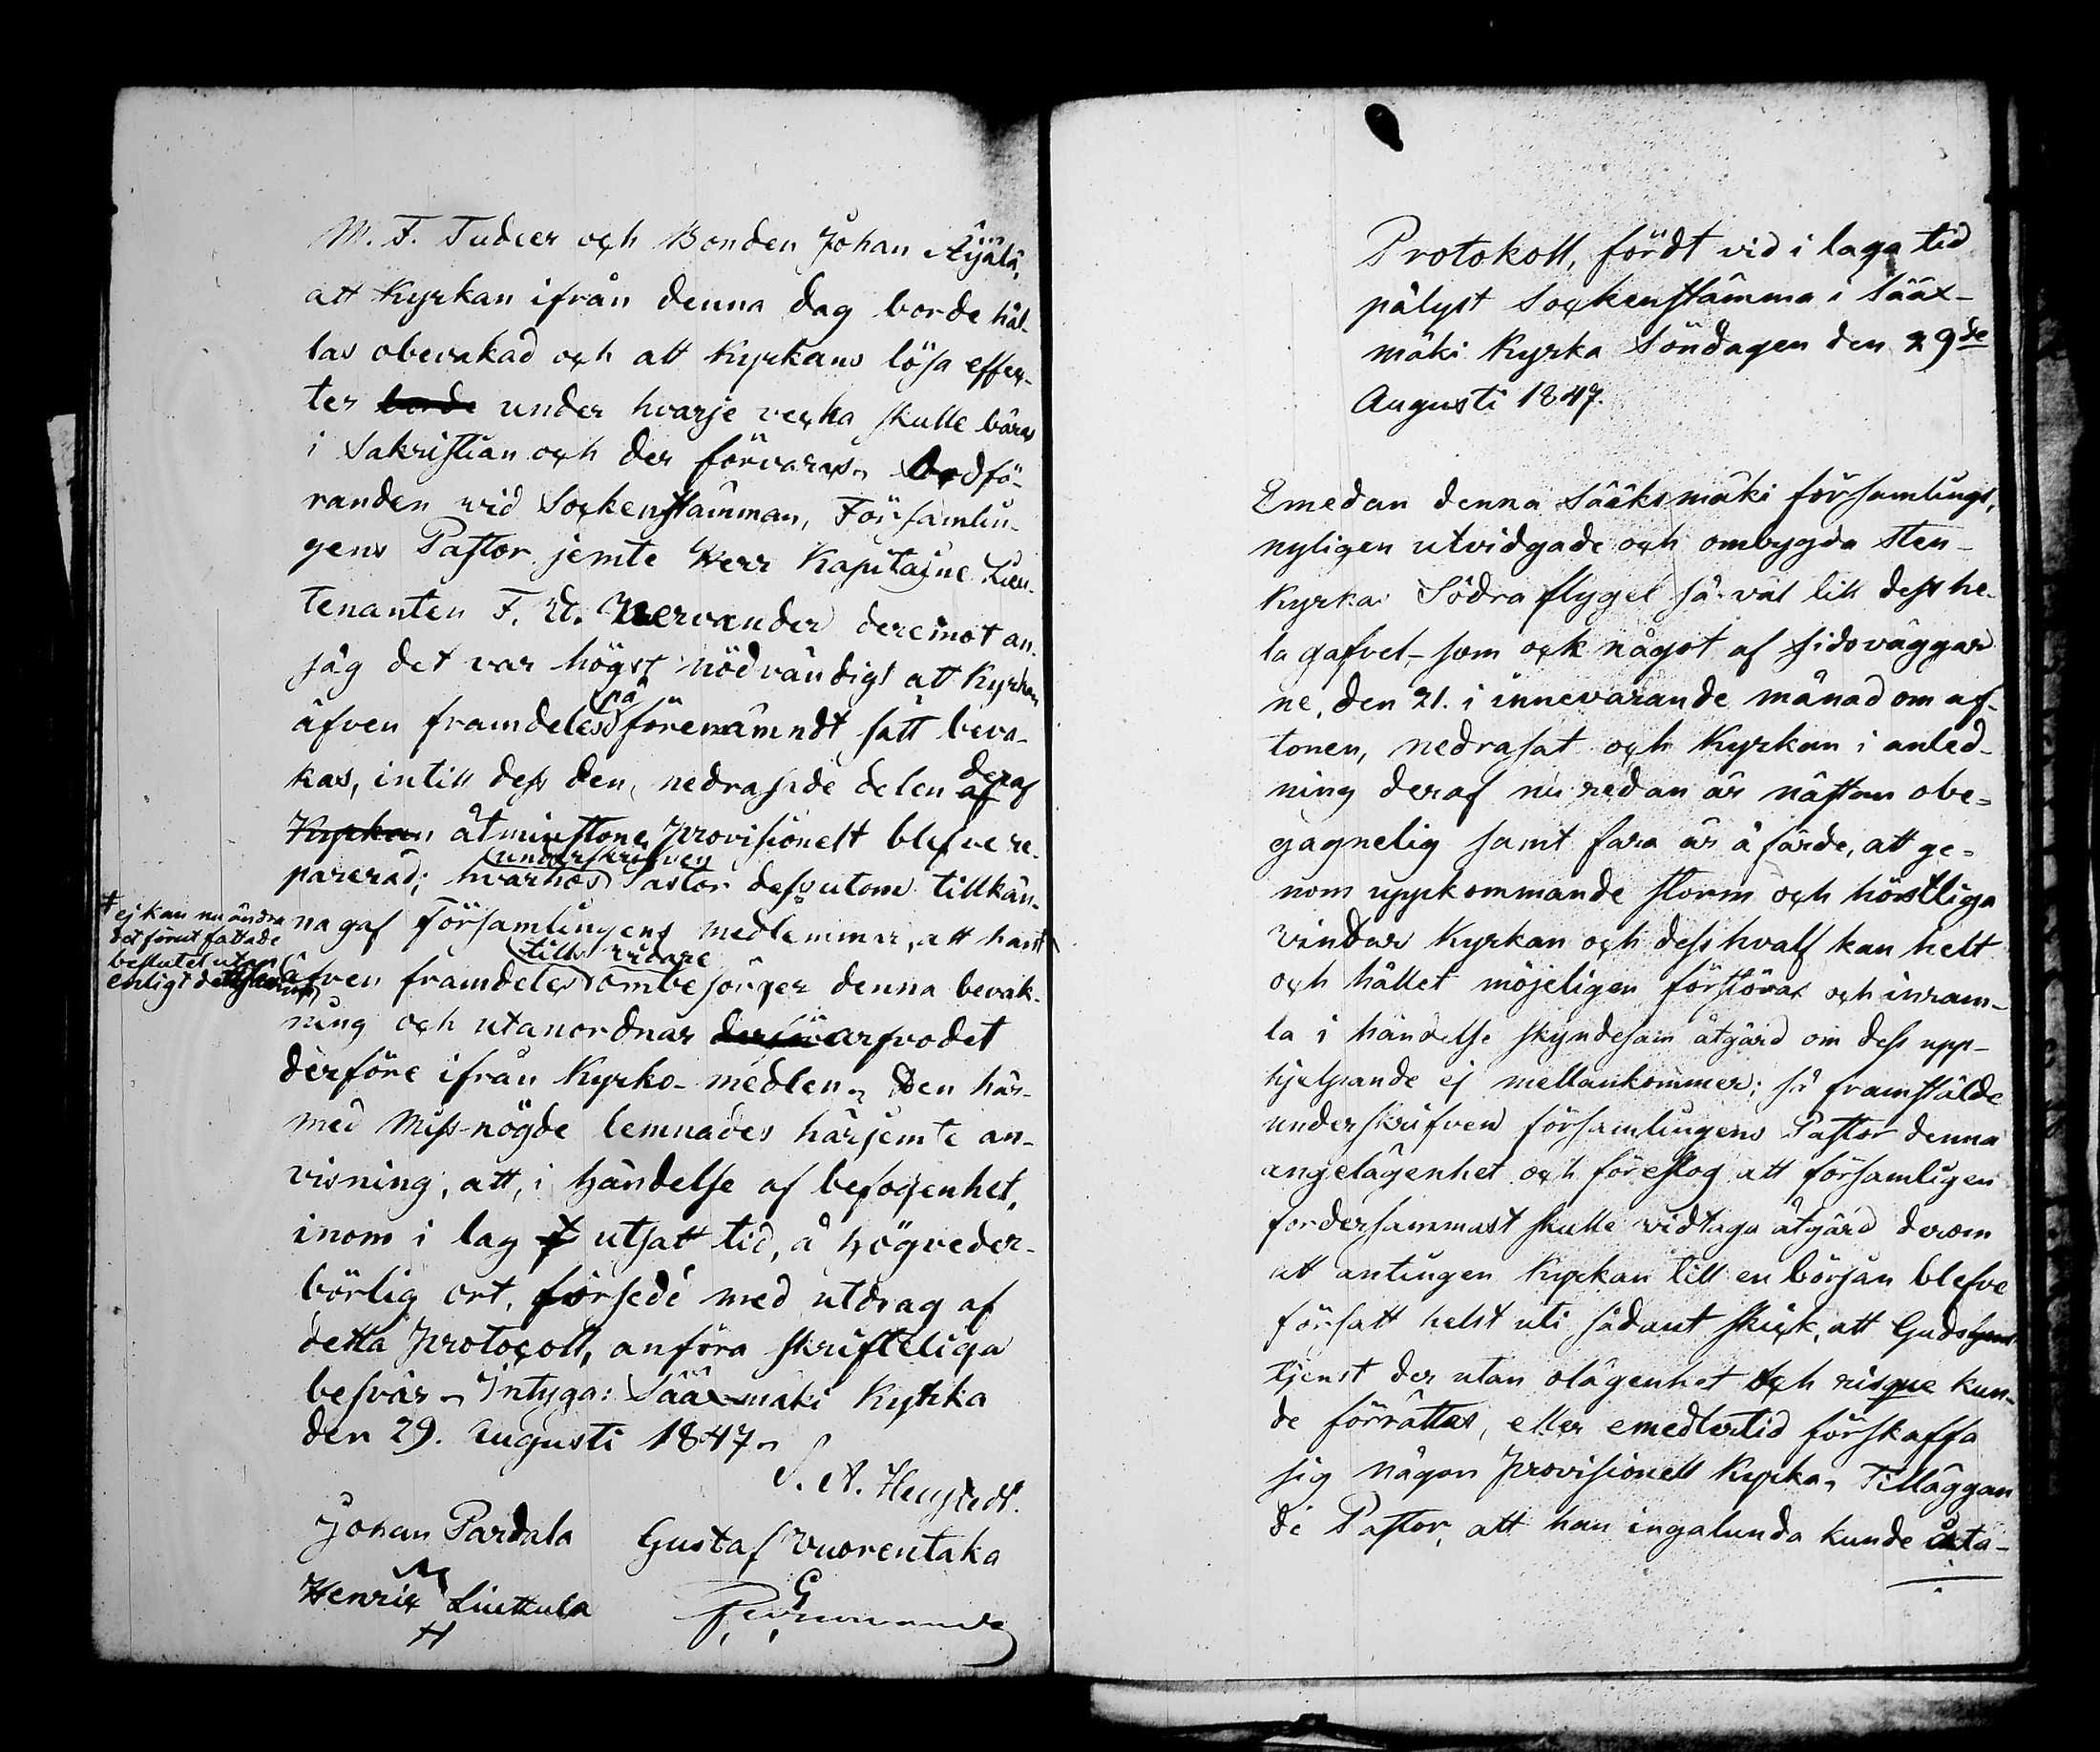 M. F. Tudeer och Bonden Johan Äijälä,
att Kyrkan ifrån denna dag borde hål-
las obevakad och att Kyrkans lösa effek-
ter borde under hvarje vecka skulle bäras
i Sakristian och der förvaras. Ordfö-
randen vid Sockenstämman, Församlin-
gens Pastor jemte Herr Kapitaine Lieu-
tenanten F. E. Nervander deremot an-
såg det var högst nödvändigt att Kyrkan
på
äfven framdeles förenämndt sätt beva-
kas, intill dess den nedrasade delen af deraf
Kyrkan åtminstone provisionelt blefve re-
underskrifven
parerad; hvarhos Pastor dessutom tillkän-
na gaf Församlingens medlemmar, att han †
† ej kan nu ändra
det förut fattade
beslutet utan
enligt detsamma
tills vidare
äfven framdeles ombesörger denna bevak-
ning och utanordnar derför arfvodet
derföre ifrån Kyrko-medlen. Den här-
med Missnögde lemnades härjemte an-
visning, att, i händelse af befogenhet,
inom i lag utsatt tid, å högveder-
börlig ort, försedd med utdrag af
detta Protocoll, anföra skrifteliga
besvär. Intyga: Sääxmäki Kyrka
den 29. Augusti 1847.
S. A. Hengstedt.
Johan Pardala Gustaf Vuorentaka
Henric Liuttula
H
Protokoll, fördt vid i laga tid
pålyst Sockenstämma i Sääx-
mäki Kyrka Söndagen den 29de
Augusti 1847.
Emedan denna Sääksmäki församlings,
nyligen utvidgade och ombygda Sten-
Kyrka Södra flygel så väl till dess he-
la gafvel, som ock något af sidoväggar
ne, den 21. i innevarande månad om af-
tonen, nedrasat och Kyrkan i anled-
ning deraf nu redan är nästan obe-
gagnelig samt fara är å färde, att ge-
nom uppkommande storm och höstliga
vindar Kyrkan och dess hvalf kan helt
och hållet möjeligen förstöras och inram-
la i händelse skyndesam åtgärd om dess upp-
hjelpande ej mellankommer; så framstälde
underskrifven församlingens Pastor denna
angelägenhet och föreslog att församligen
fordersammast skulle vidtaga åtgärd derom
att antingen Kyrkan till en början blefve
försatt helst uti sådant skick, att Guds
tjenst der utan olägenhet och risque kun-
de förrättas, eller emedlertid förskaffa
sig någon Provisionell Kyrka. Tilläggan
de Pastor, att han ingalunda kunde åta-